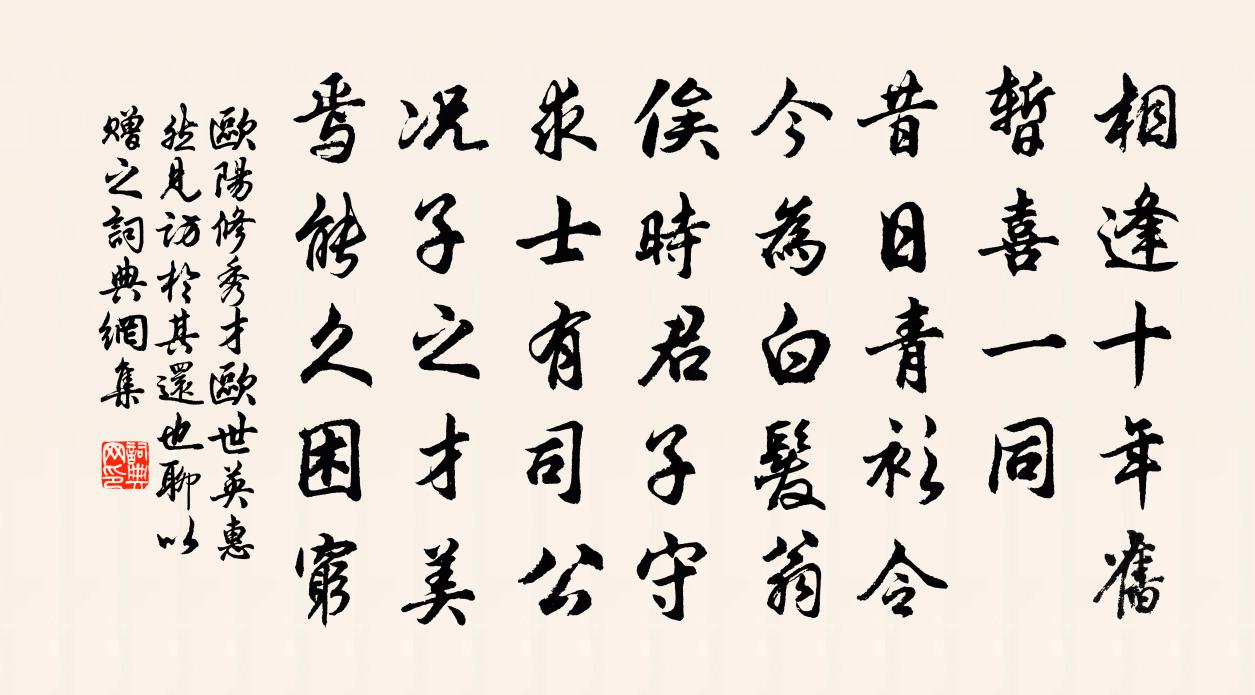 相逢十年舊
暫喜一同
昔日青衫令
今為白髮翁
俟時君子守
求士有司公
况子之才美
焉能久困窮
歐陽修秀才歐世英惠
然見訪於其還也聊以
贈之詞典網集
詞典
网印